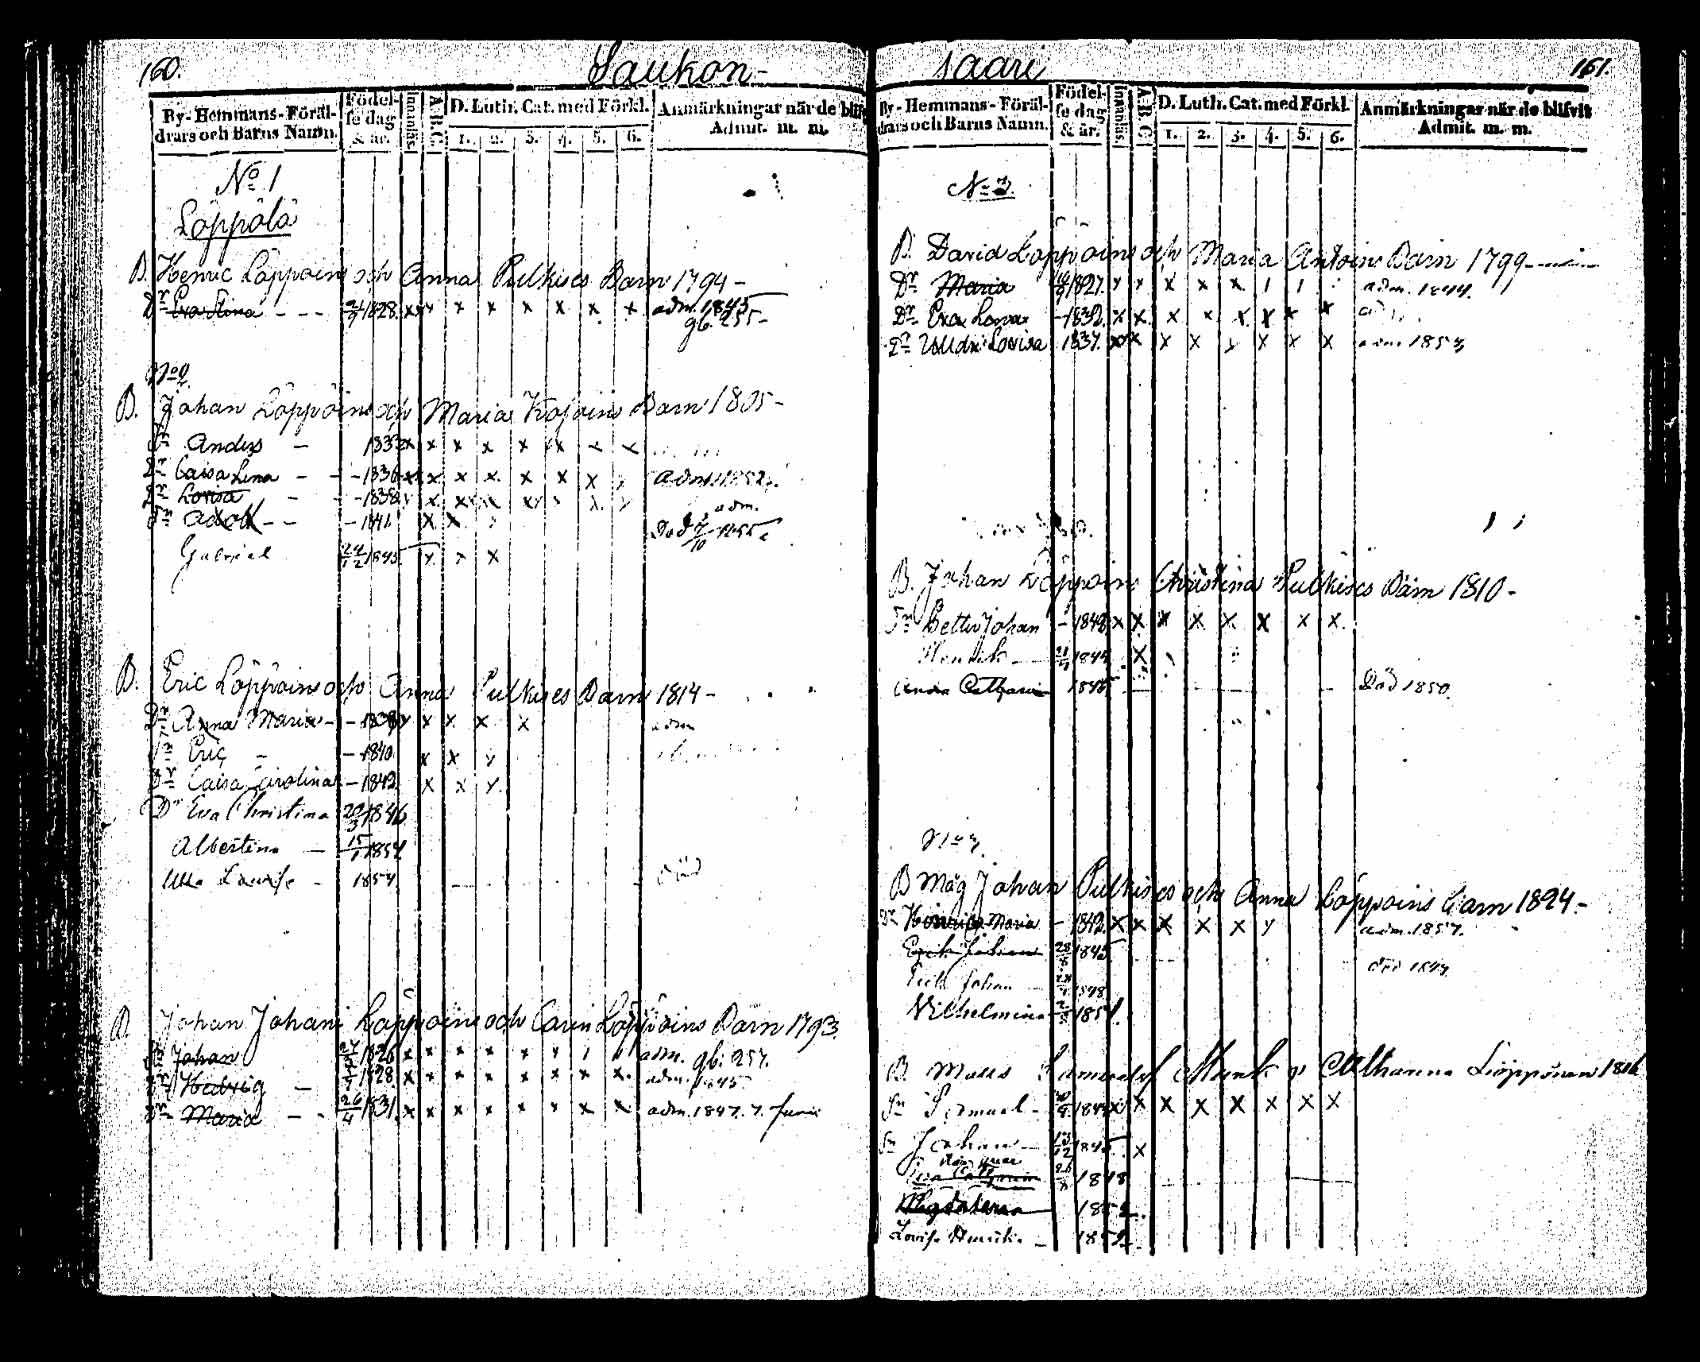 160.
Saukon-
By-Hemmans-Föräl-
drars och Barns Namn.
Födel-
se dag
& år.
Innanläs.
A.B.C.
D. Luth. Cat. med Förkl.
1. 2. 3. 4. 5. 6.
Anmärkningar när de blifv
Admit. m. m.
No 1
Löppölä
B. Henric Löppöins och Anna Pulkises Barn 1794-
Dr Eva Stina - - - 1828. x x x x x x x adm. 1845
gb. 255-
B. Johan Löppöins och Maria Barn 1805-
Sn Anders - 183 x x x x x x x x
Dr Caisa Lena - - 1836 x x x x x x x adm. 1852.
Dr Lovisa - - 1838 x x x x x x adm.
Sn Adolf - - - 1841 x x Död 7/10 1855
Gabriel 24/12 1845 x x x
B. Eric Löppöins och Anna Pulkises Barn 1814-
Dr Anna Maria - - 1838 x x x x x adm
Sn Eric - - 1840 x x
Dr Caisa Carolina - 1843 x x x
Dr Eva Christina 20/3 1846
Albertina - 15/1 1851
Ulla Lovisa - 1854 Död
B. Johan Johans Löppöins och Carin Löppöins Barn 1793.
Sn Johan 1826 x x x x x x adm. gb. 257.
Dr Hedvig - 1828 x x x x x x x x adm. 1845
Dr Maria - - 26/4 1831 x x x x x x x x adm. 1847. 7. Juni
saari
161.
By-Hemmans-Föräl-
drars och Barns Namn.
Födel-
se dag
& år.
Innanläs.
A.B.C.
D. Luth. Cat. med Förkl.
1. 2. 3. 4. 5. 6.
Anmärkningar när de blifvit
Admit. m. m.
No 2.
B. David Löppöins och Maria Antoins Barn 1799
Dr Maria 1827. x x x x x adm. 1844.
Dr Eva Lovisa - 1832. x x x x x x x x
Dr Lovisa 1837. x x x x x x x x adm 1853
B. Johan Löppöins Christina Pulkises Barn 1810-
Sn Petter Johan - 1842 x x x x x x x x
Henrik 1845 x
Anna Catharina 1848 Död 1850.
B Måg Johan Pulkises och Anna Löppöins Barn 1824-
Dr Henrica Maria - 1842. x x x x x x adm. 1857.
Erik Johan 28/8 1845 död 1847
Erik Johan 1848
Vilhelmina 1851.
B. Matts Munk o Catharina Löppönen 1816
Sn Samuel - 184 x x x x x x x x
Sn Johan - 13/12 1845 x
Eva Catharina 26/8 1848
Magdalena 1852.
Lovisa 185